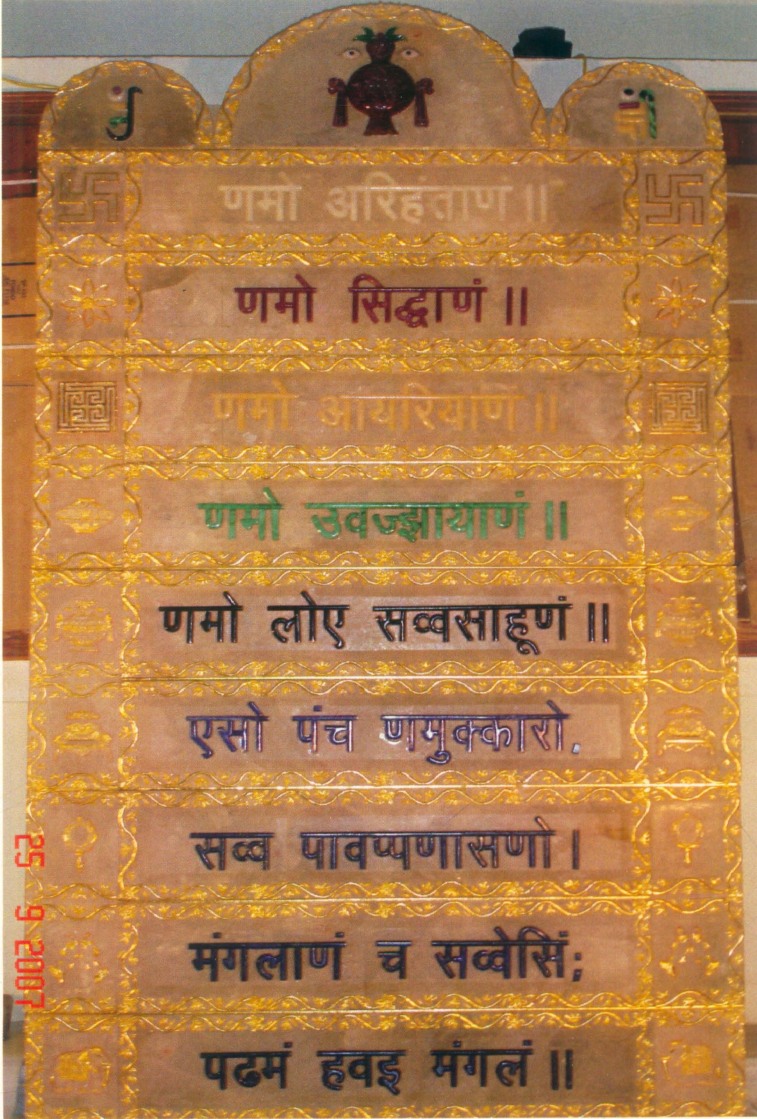 णमो अरिहंताणं ॥
णमो सिद्धाणं ॥
णमो आयरियाणं ॥
णमो उवज्झायाणं ॥
णमो लोए सव्वसाहूणं ॥
एसो पंच णमुक्कारो.
सव्व पावप्पणासणो ।
मंगलाणं च सव्वेसिं;
पढमं हवइ मंगलं ॥
25 9 2007